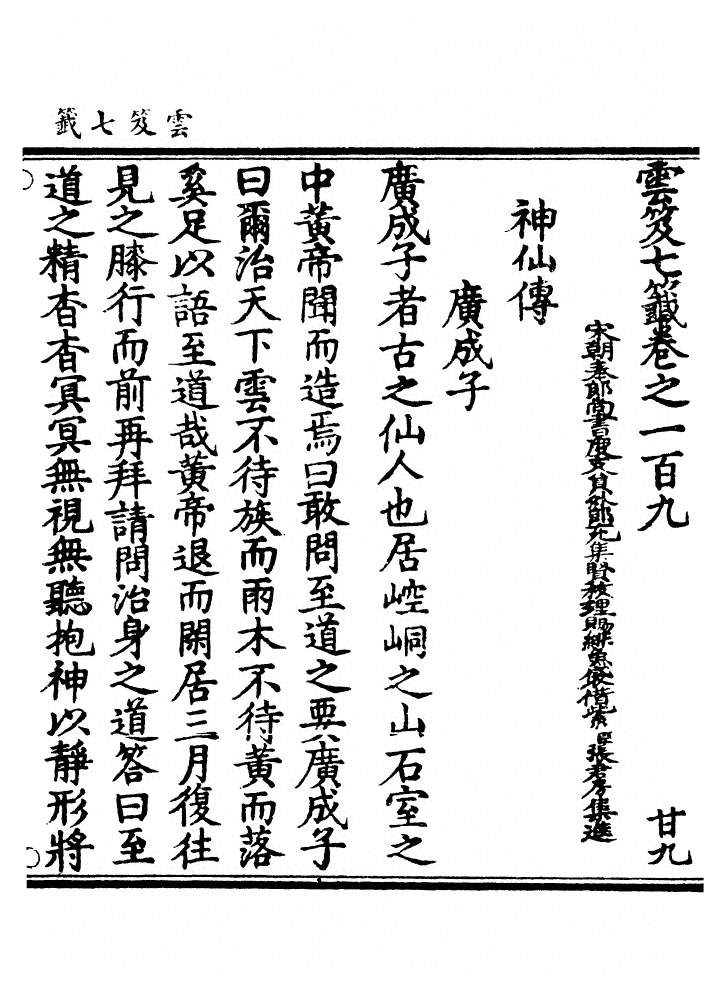 雲笈七籤
雲笈七籤卷之一百九 甘九
宋朝奉郎尚書度支員外郎充集賢校理賜緋魚袋借紫臣張君房集進
神仙傳
廣成子
廣成子者古之仙人也居崆峒之山石室之
中黃帝聞而造焉曰敢問至道之要廣成子
曰爾治天下雲不待族而雨木不待黃而落
奚足以語至道哉黃帝退而閑居三月復往
見之膝行而前再拜請問治身之道答曰至
道之精杳杳冥冥無視無聽抱神以靜形將